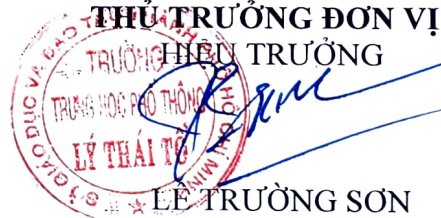 THỦ TRƯỞNG ĐƠN VỊ
HIỆU TRƯỞNG
SỞ GIÁO DỤC VÀ ĐÀO TẠO THÀNH PHỐ HỒ CHÍ MINH
TRƯỜNG
TRUNG HỌC PHỔ THÔNG
LÝ THÁI TỔ
LÊ TRƯỜNG SƠN